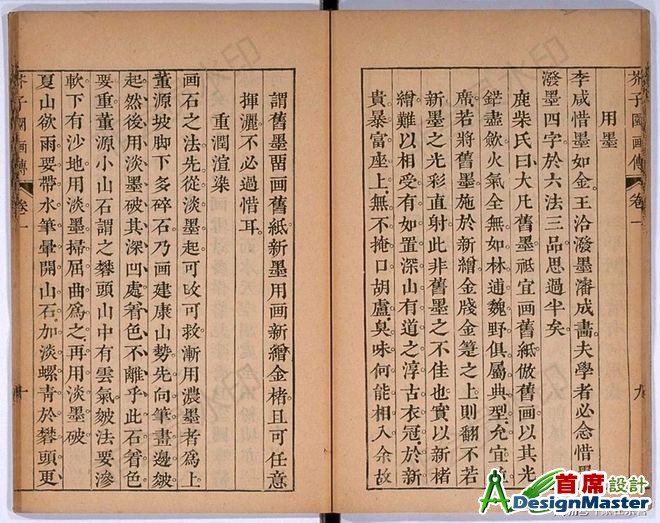 芥子園画傳
卷一
九
用墨
李成惜墨如金王洽潑墨瀋成畫夫學者必念惜墨
潑墨四字於六法三品思過半矣
鹿柴氏曰大凡舊墨祗宜画舊紙倣舊画以其光
鋩盡歛火氣全無如林逋魏野俱屬典型允宜並
席若將舊墨施於新繒金牋金箑之上則翻不若
新墨之光彩直射此非舊墨之不佳也實以新楮
繒難以相受有如置深山有道之淳古衣冠於新
貴暴富座上無不掩口胡盧臭味何能相入余故
謂舊墨留画舊紙新墨用画新繒金楮且可任意
揮灑不必過惜耳
重潤渲染
画石之法先從淡墨起可改可救漸用濃墨者為上
董源坡脚下多碎石乃画建康山勢先向筆畫邊皴
起然後用淡墨破其深凹處着色不離乎此石着色
要重董源小山石謂之礬頭山中有雲氣皴法要滲
軟下有沙地用淡墨掃屈曲為之再用淡墨破
夏山欲雨要帶水筆暈開山石加淡螺青於礬頭更
芥子園画傳
卷一
十
首席設計
DesignMaster